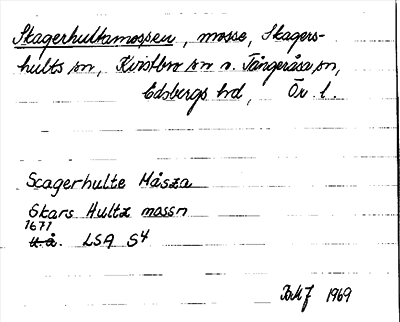 Skagerhultamossen, mosse, Skagers-
hults sn, Kvistbro sn o. Tångeråsa sn,
Edsbergs hd, Ör. l.
Scagerhulte Måsza
Skars Hultz mossn
1671
u.å. LSA S4
1969